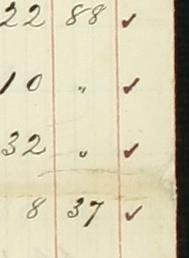 22 88 ✓
10 " ✓
32 " ✓
8 37 ✓